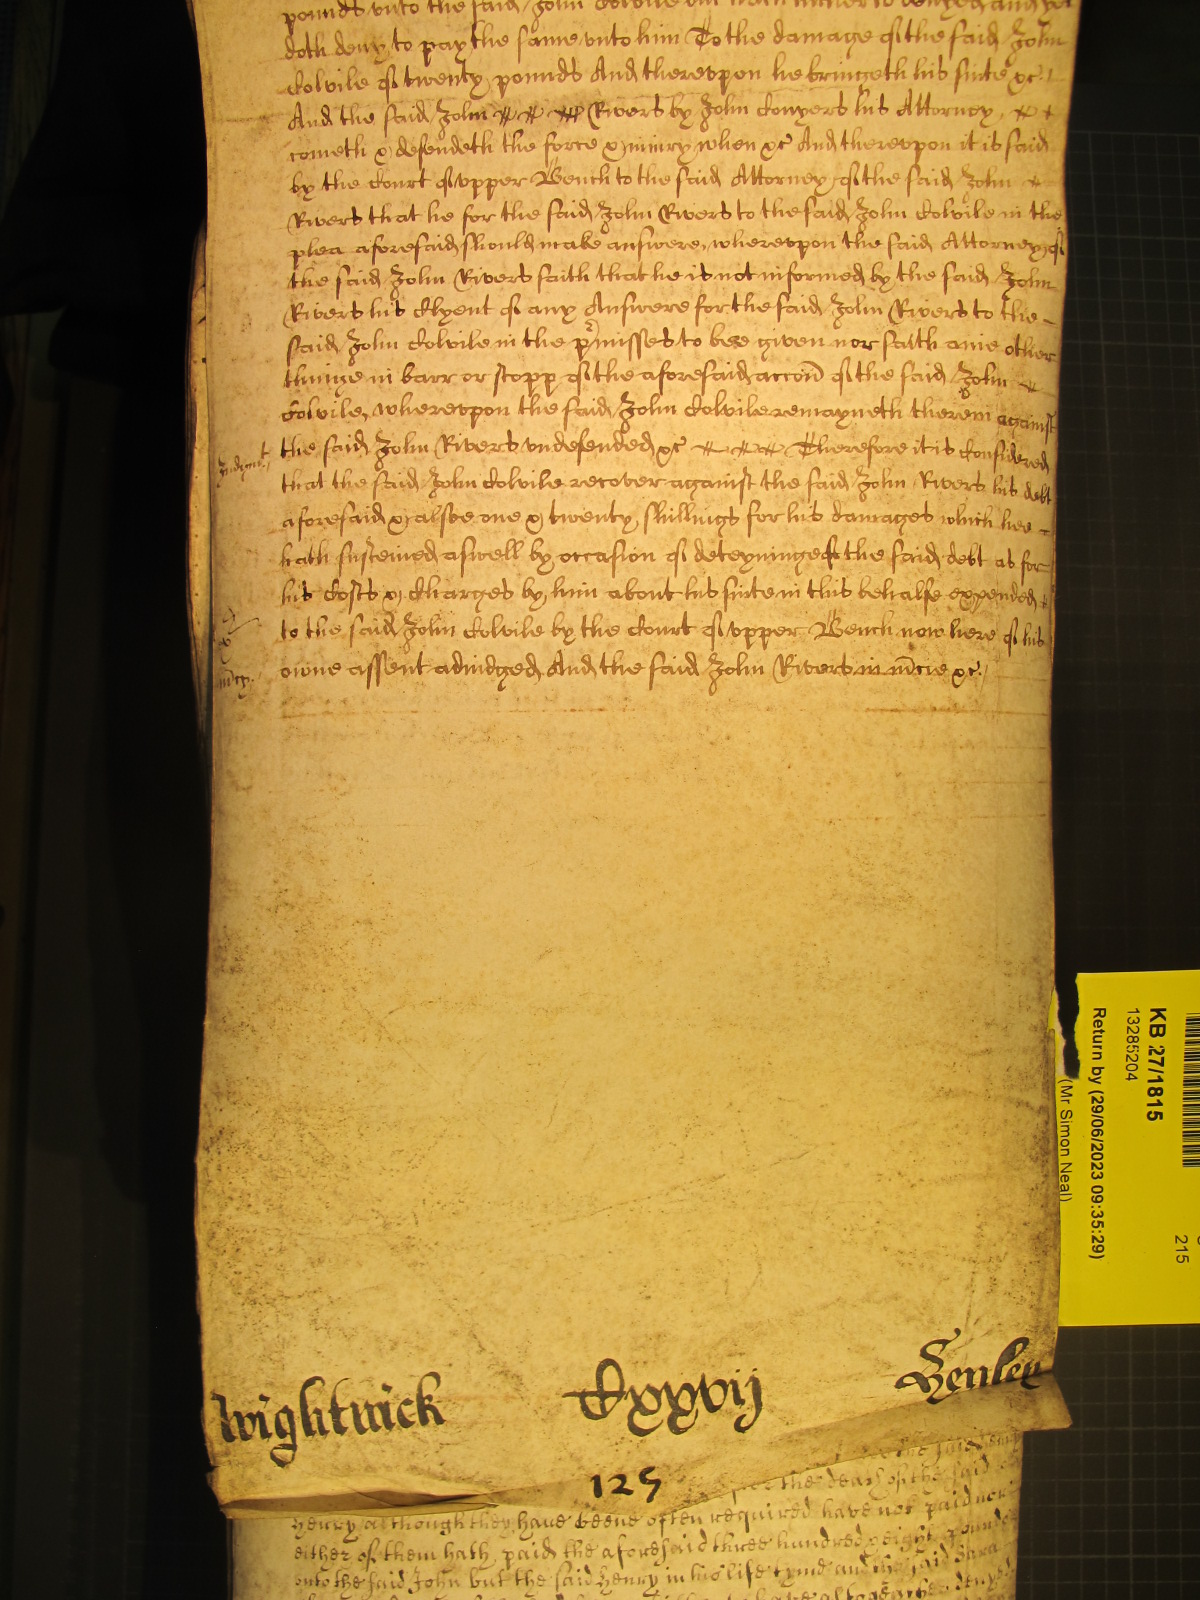 pounds vnto the said John Colvile
doth deny to pay the same vnto him To the damage of the said John
Colvile of twenty pounds And therevpon he bringeth his suite &c
And the said John Rivers by John Conyers his Attorney
cometh & defendeth the force & iniury when &c And therevpon it is said
by the Court of vpper Bench to the said Attorney of the said John
Rivers that he for the said John Rivers to the said John Colvile in the
plea aforesaid should make answere, wherevpon the said Attorney of
the said John Rivers saith that he is not informed by the said John
Rivers his Clyent of any Answere for the said John Rivers to the
said John Colvile in the p'misses to bee given nor saith anie other
thinge in barr or stopp of the aforesaid accon of the said John
Colvile, wherevpon the said John Colvile remayneth therein against
Judgmt
the said John Rivers vndefended &c Therefore it is Considered
that the said John Colvile recover against the said John Rivers his debt
aforesaid & alsoe one & twenty shillings for his damages which hee
hath susteined aswell by occasion of deteyninge of the said debt as for
his Costs & Charges by him about his suite in this behalfe expended
to the said John Colvile by the Court of vpper Bench now here of his
owne assent adiudged And the said John Rivers in mcie &c
mcy.
Wightwick Cxxvij Henley
125
the said Henry
the death of the said
Henry although they have beene often required have not paid nor
either of them hath paid the aforesaid three hundred & eight pounds
vnto the said John but the said Henry in his life tyme and the said Sara
altogeather denyed
KB 27/1815
13285204
Return by (29/06/2023 09:35:29)
(Mr Simon Neal)
215